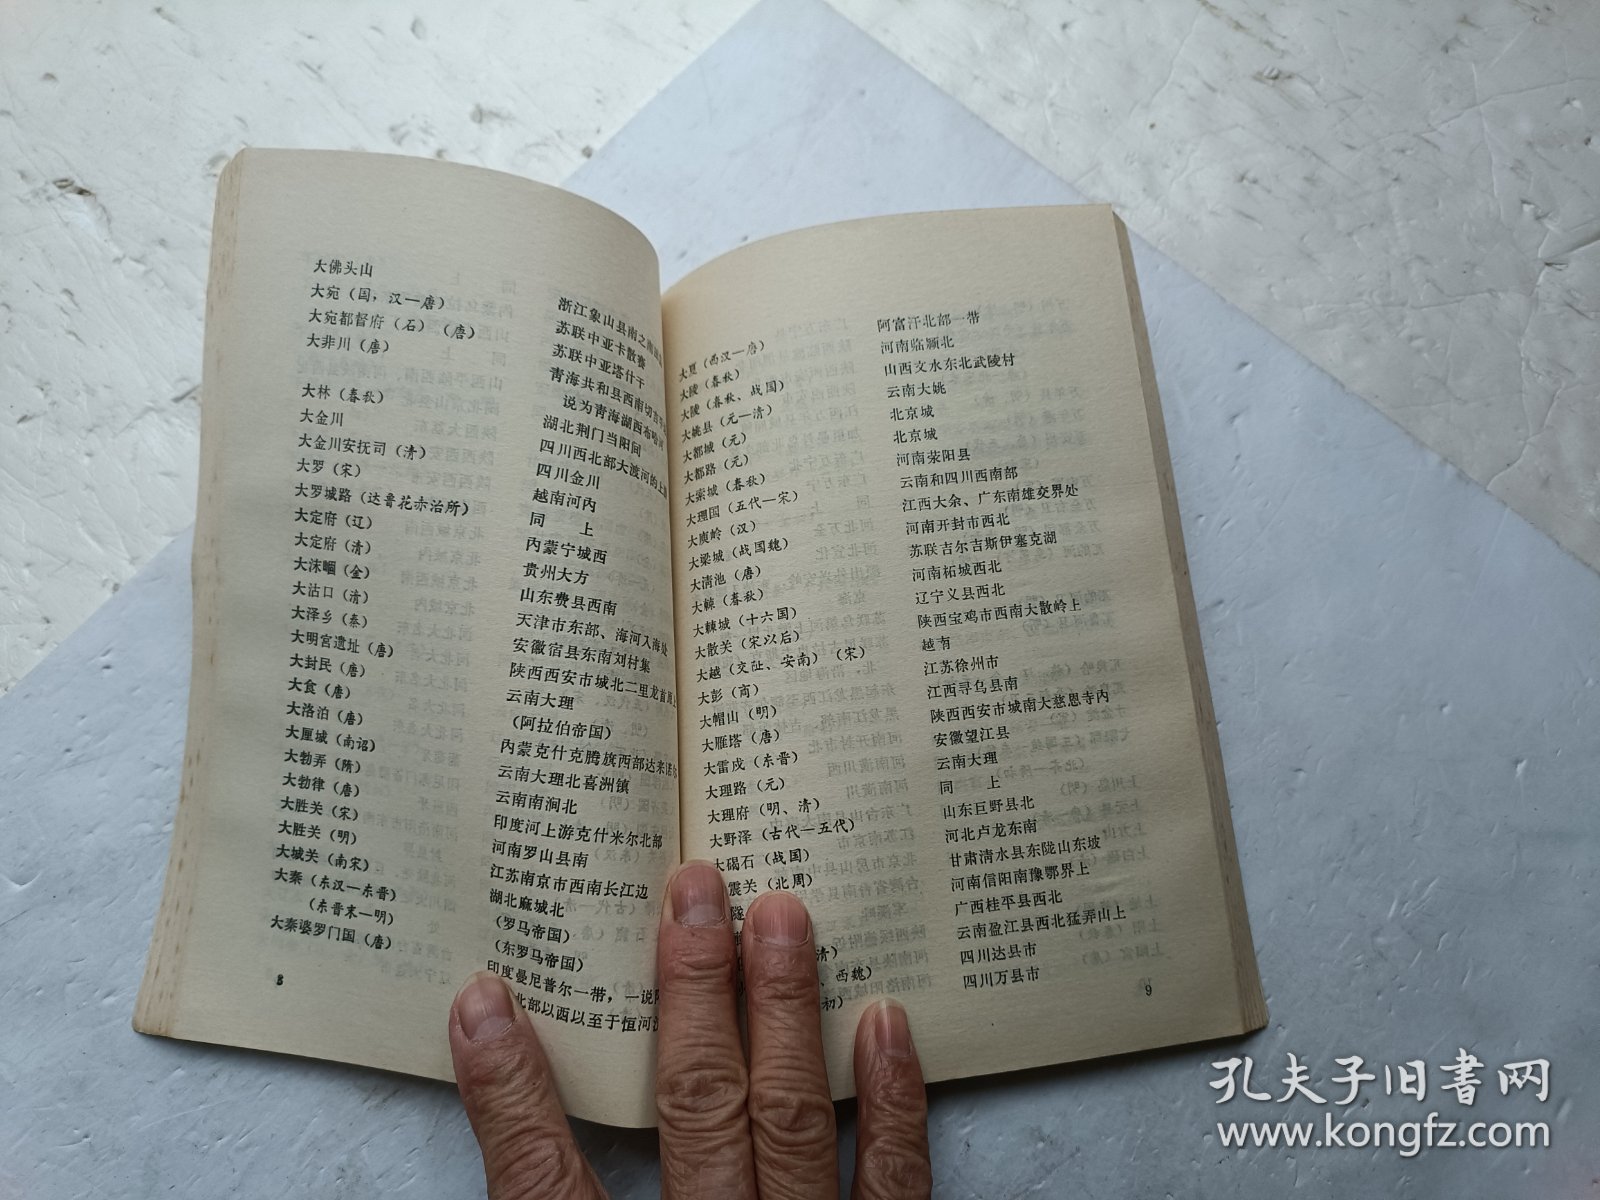 大佛头山
浙江象山县南之南田
大宛（国，汉—唐）
苏联中亚卡散赛
大宛都督府（石）（唐）
苏联中亚塔什干
大非川（唐）
青海共和县西南切吉
说为青海湖西布哈河
大林（春秋）
湖北荆门当阳间
大金川
四川西北部大渡河的上
大金川安抚司（清）
四川金川
大罗（宋）
越南河内
大罗城路（达鲁花赤治所）
同 上
大定府（辽）
内蒙宁城西
大定府（清）
贵州大方
大沫崓（金）
山东费县西南
大沽口（清）
天津市东部、海河入海处
大泽乡（秦）
安徽宿县东南刘村集
大明宫遗址（唐）
陕西西安市城北二里龙首原上
大封民（唐）
云南大理
大食（唐）
（阿拉伯帝国）
大洛泊（唐）
内蒙克什克腾旗西部达来诺尔
大厘城（南诏）
云南大理北喜洲镇
大勃弄（隋）
云南南涧北
大勃律（唐）
印度河上游克什米尔北部
大胜关（宋）
河南罗山县南
大胜关（明）
江苏南京市西南长江边
大城关（南宋）
湖北麻城北
大秦（东汉—东晋）
（罗马帝国）
（东晋末—明）
（东罗马帝国）
大秦婆罗门国（唐）
印度曼尼普尔一带，一说阿
北部以西以至于恒河
8
大夏（西汉—唐）
阿富汗北部一带
大陵（春秋）
河南临颍北
大陵（春秋、战国）
山西文水东北武陵村
大姚县（元—清）
云南大姚
大都城（元）
北京城
大都路（元）
北京城
大索城（春秋）
河南荥阳县
大理国（五代—宋）
云南和四川西南部
大庾岭（汉）
江西大余、广东南雄交界处
大梁城（战国魏）
河南开封市西北
大清池（唐）
苏联吉尔吉斯伊塞克湖
大棘（春秋）
河南柘城西北
大棘城（十六国）
辽宁义县西北
大散关（宋以后）
陕西宝鸡市西南大散岭上
大越（交阯、安南）（宋）
越南
大彭（商）
江苏徐州市
大帽山（明）
江西寻乌县南
大雁塔（唐）
陕西西安市城南大慈恩寺内
大雷戍（东晋）
安徽望江县
大理路（元）
云南大理
大理府（明、清）
同 上
大野泽（古代—五代）
山东巨野县北
大碣石（战国）
河北卢龙东南
震关（北周）
甘肃清水县东陇山东坡
隧
河南信阳南豫鄂界上
广西桂平县西北
清）
云南盈江县西北猛弄山上
、西魏）
四川达县市
初）
四川万县市
9
孔夫子旧书网
www.kongfz.com